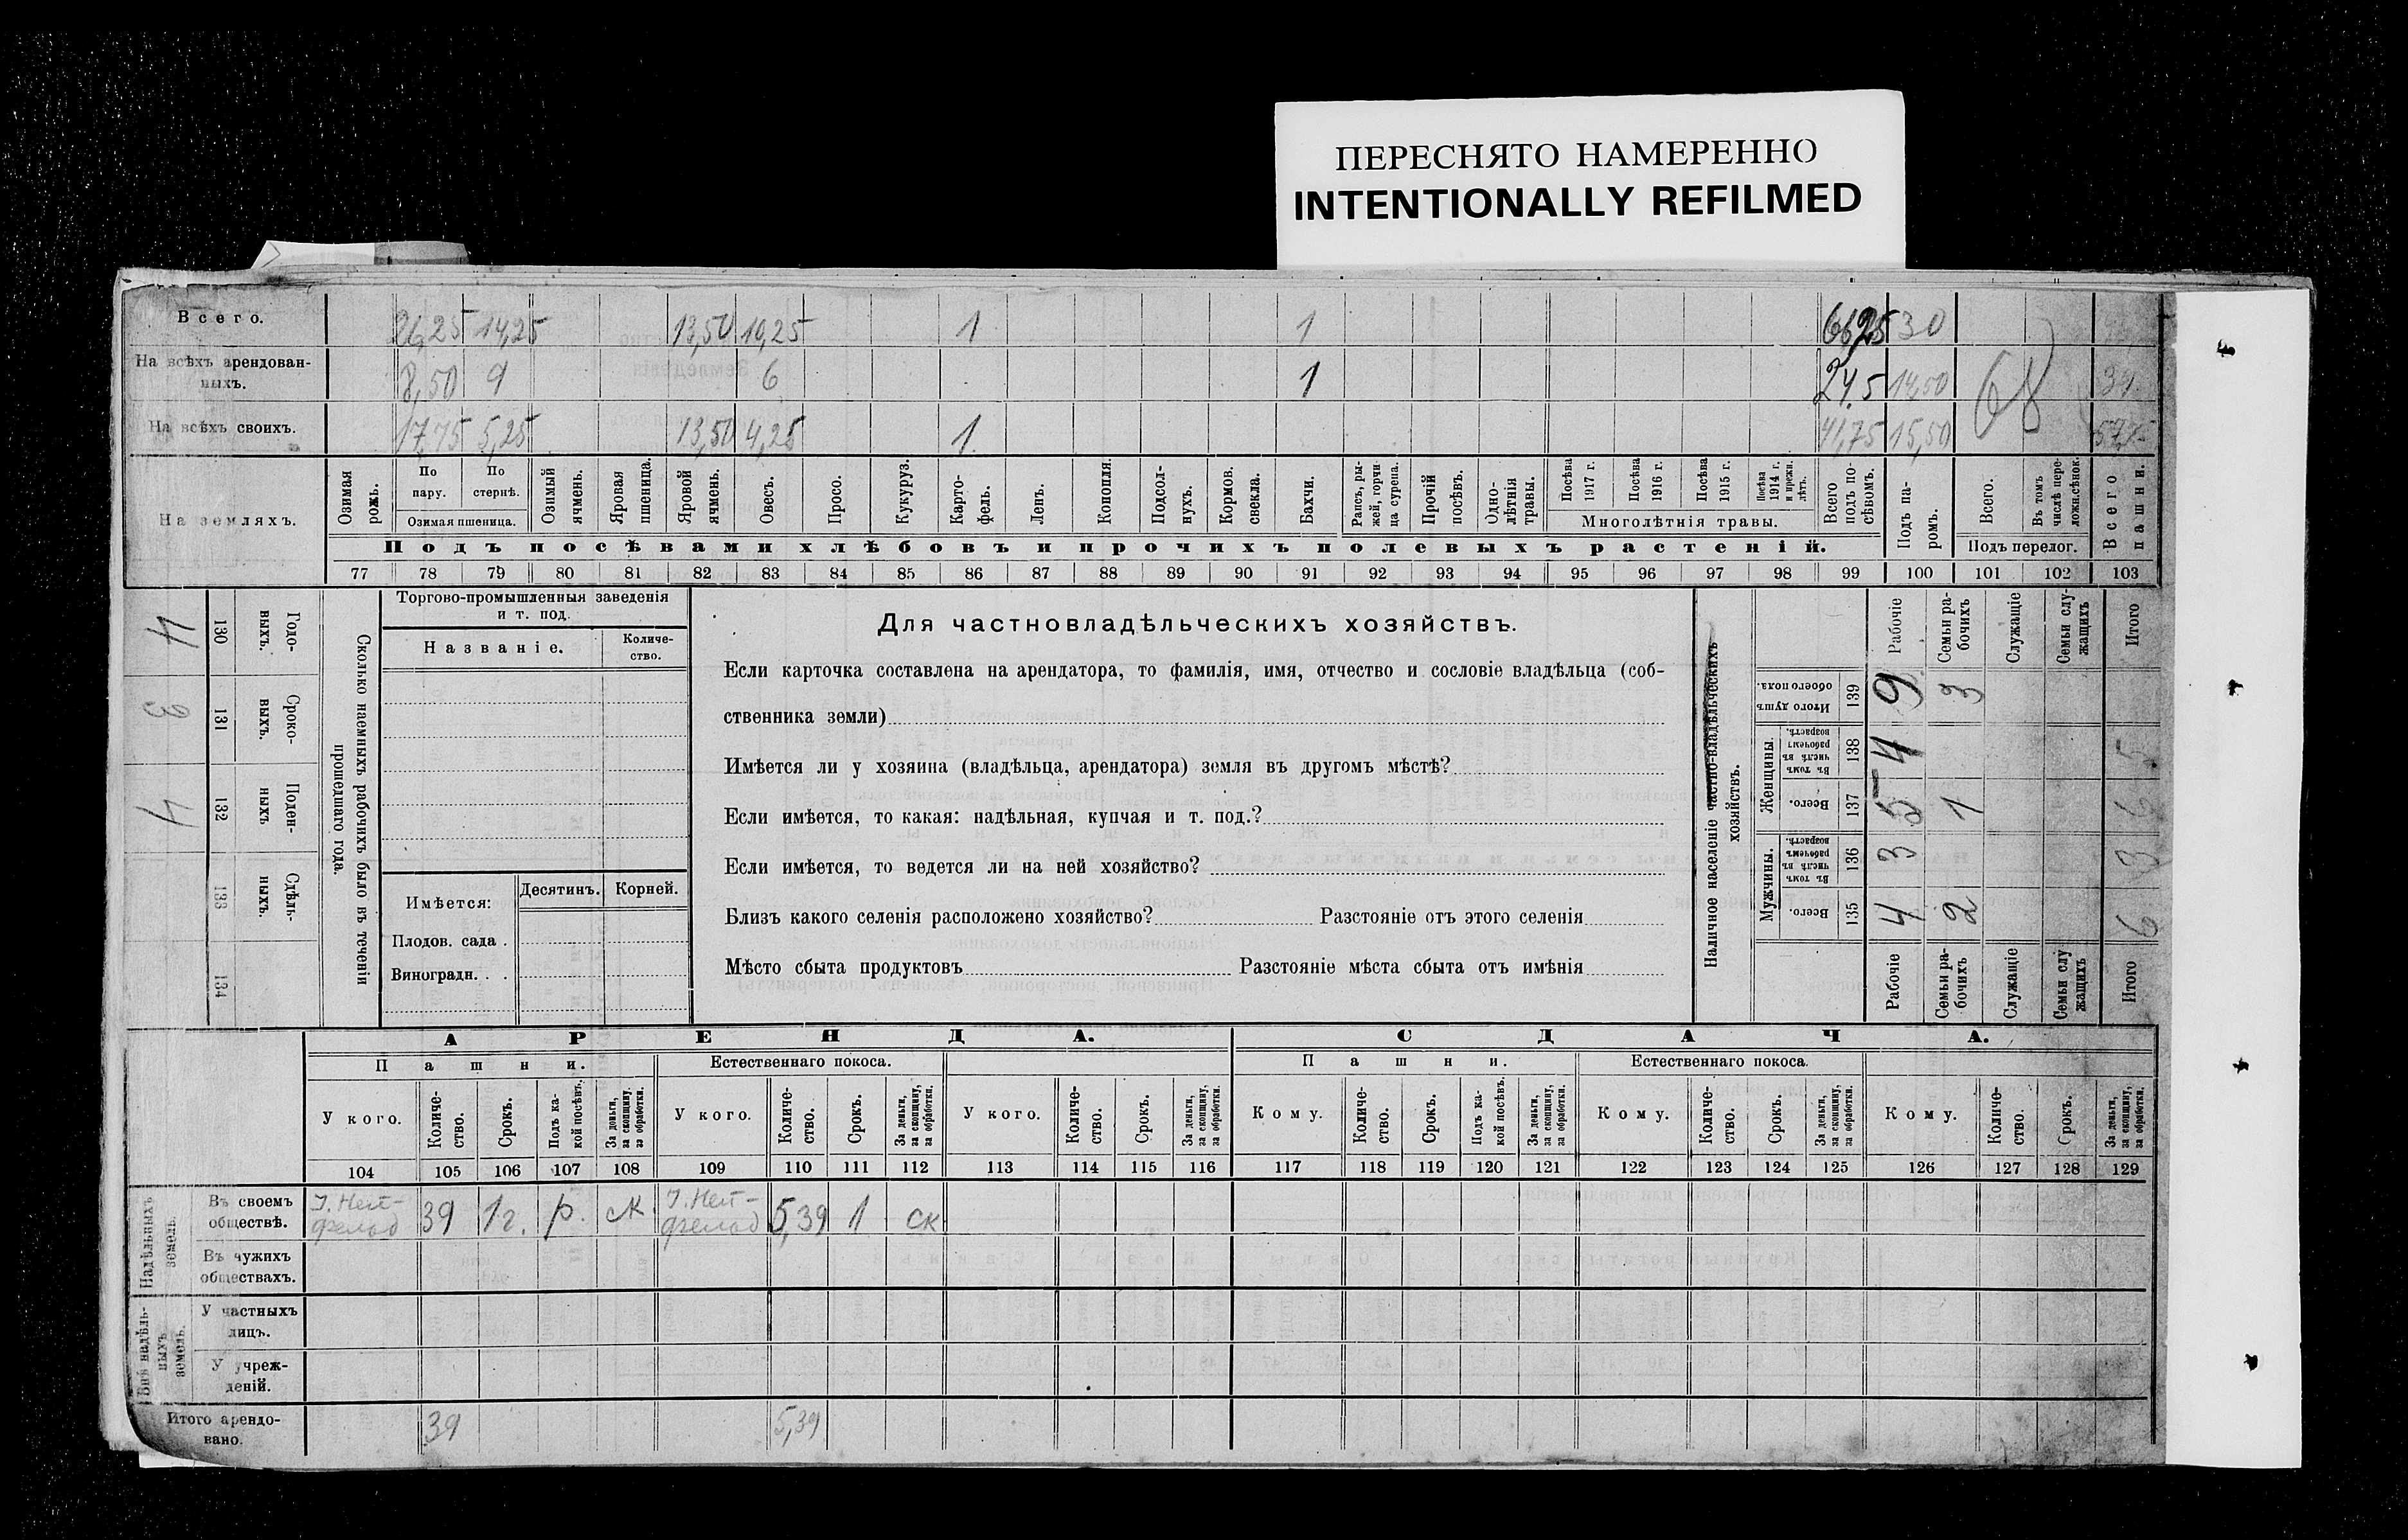 ПЕРЕСНЯТО НАМЕРЕННО
INTENTIONALLY REFILMED
Всего. 26,25 14,25 13,50 10,25 1 1 30
На всѣхъ арендован-
ныхъ. 8,50 9 6 1 24,5 14,50 68 39
На всѣхъ своихъ. 17,75 5,25 13,50 4,25 1 41,75 15,50
На земляхъ.
Озимая рожь.
По пару.
По стернѣ.
Озимая пшеница.
Озимый ячмень.
Яровая пшеница.
Яровой ячмень.
Овесъ.
Просо.
Кукуруз.
Карто-
фель.
Ленъ.
Конопля.
Подсол-
нухъ.
Кормов. свекла.
Бахчи.
Рапсъ, ры-
жей, горчи
ца сурепа.
Прочій посѣвъ.
Одно-
лѣтнія травы.
Посѣва 1917 г.
Посѣва 1916 г.
Посѣва 1915 г.
Посѣва 1914 г. и прежн. лѣтъ.
Многолѣтнія травы.
Всего подъ по-
сѣвомъ.
Подъ па-
ромъ.
Всего.
Въ томъ числѣ пере-
ложн. сѣнок.
Подъ перелог.
Всего пашни.
Подъ посѣвами хлѣбовъ и прочихъ полевыхъ растеній.
77 78 79 80 81 82 83 84 85 86 87 88 89 90 91 92 93 94 95 96 97 98 99 100 101 102 103
4 130 Годо-
ныхъ.
3 131 Сроко-
выхъ.
4 132 Поден-
ныхъ
133 Сдѣль-
ныхъ.
134
Сколько наемныхъ рабочихъ было въ теченіи
прошедшаго года.
Торгово-промышленныя заведенія
и т. под.
Названіе.
Количе-
ство.
Имѣется:
Десятинъ.
Корней.
Плодов. сада .
Виноградн. . .
Для частновладѣльческихъ хозяйствъ.
Если карточка составлена на арендатора, то фамилія, имя, отчество и сословіе владѣльца (соб-
ственника земли)
Имѣется ли у хозяина (владѣльца, арендатора) земля въ другомъ мѣстѣ?
Если имѣется, то какая: надѣльная, купчая и т. под.?
Если имѣется, то ведется ли на ней хозяйство?
Близъ какого селенія расположено хозяйство? Разстояніе отъ этого селенія
Мѣсто сбыта продуктовъ Разстояніе мѣста сбыта отъ имѣнія
Наличное населеніе частно-владѣльческихъ
хозяйствъ.
Рабочіе
Семьи ра-
бочихъ
Служащіе
Семьи слу-
жащихъ
Итого
Итого душъ обоего пола. 139 9 3
Женщины.
Въ томъ числѣ въ рабочемъ возрастѣ. 138 4 5
Всего. 137 5 1 6
Мужчины.
Въ томъ числѣ въ рабочемъ возрастѣ. 136 3 3
Всего. 135 4 2 6
Рабочіе
Семьи ра-
бочихъ
Служащіе
Семьи слу
жащихъ
Итого
АРЕНДА.
СДАЧА.
Пашни.
Естественнаго покоса.
Пашни.
Естественнаго покоса.
У кого.
Количе-
ство.
Срокъ.
Подъ ка-
кой посѣвъ.
За деньги, за скопщину, за обработки.
У кого.
Количе-
ство.
Срокъ.
За деньги, за скопщину, за обработки.
У кого.
Количе-
ство.
Срокъ.
За деньги, за скопщину, за обработки.
Кому.
Количе-
ство.
Срокъ.
Подъ ка-
кой посѣвъ.
За деньги, за скопщину, за обработки.
Кому.
Количе-
ство.
Срокъ.
За деньги, за скопщину, за обработки.
Кому.
Количе-
ство.
Срокъ.
За деньги, за скопщину, за обработки.
104 105 106 107 108 109 110 111 112 113 114 115 116 117 118 119 120 121 122 123 124 125 126 127 128 129
Надѣльныхъ
земель.
Въ своемъ
обществѣ. 39 1 г. р. ск. 5,39 1 ск
Въ чужихъ
обществахъ.
Внѣ надѣль-
ныхъ
земель.
У частныхъ
лицъ.
У учреж-
деній.
Итого арендо-
вано. 39 5,39